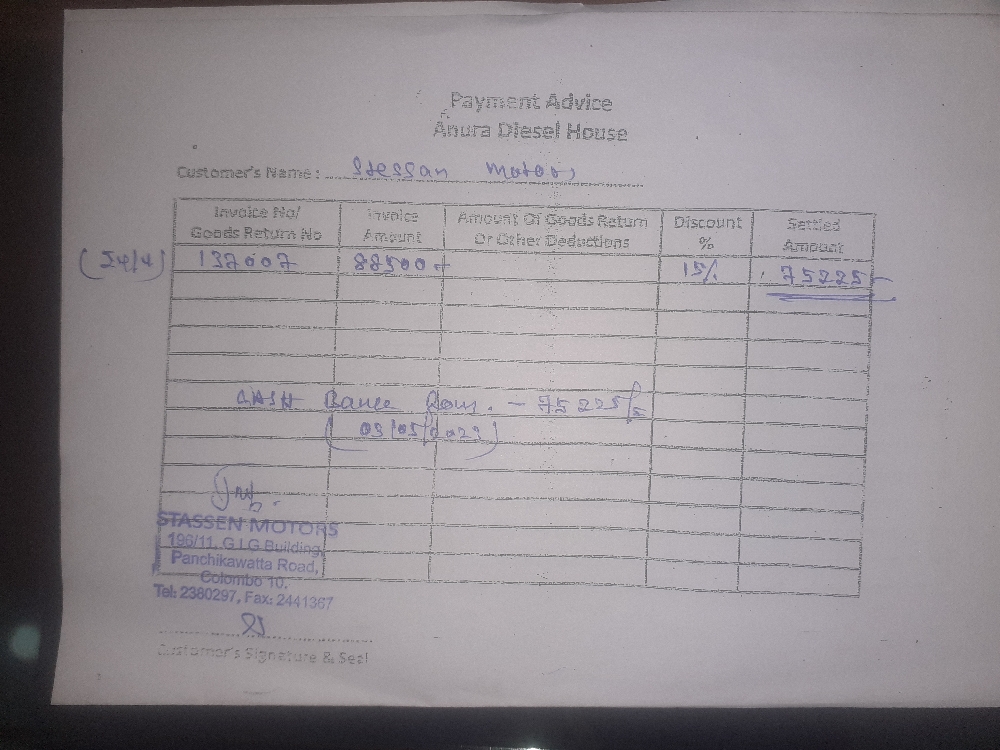 Payment Advice
Anura Diesel House
Customer's Name : Stessan Motors
Invoice No/ Goods Return No Invoice Amount Amount Of Goods Return Or Other Deductions Discount % Settled Amount
137007 88500 15% 75225
CASH - 75225/=
STASSEN MOTORS
196/11, G.I.G Building,
Panchikawatta Road,
Colombo 10.
Tel: 2380297, Fax: 2441367
Customer's Signature & Seal